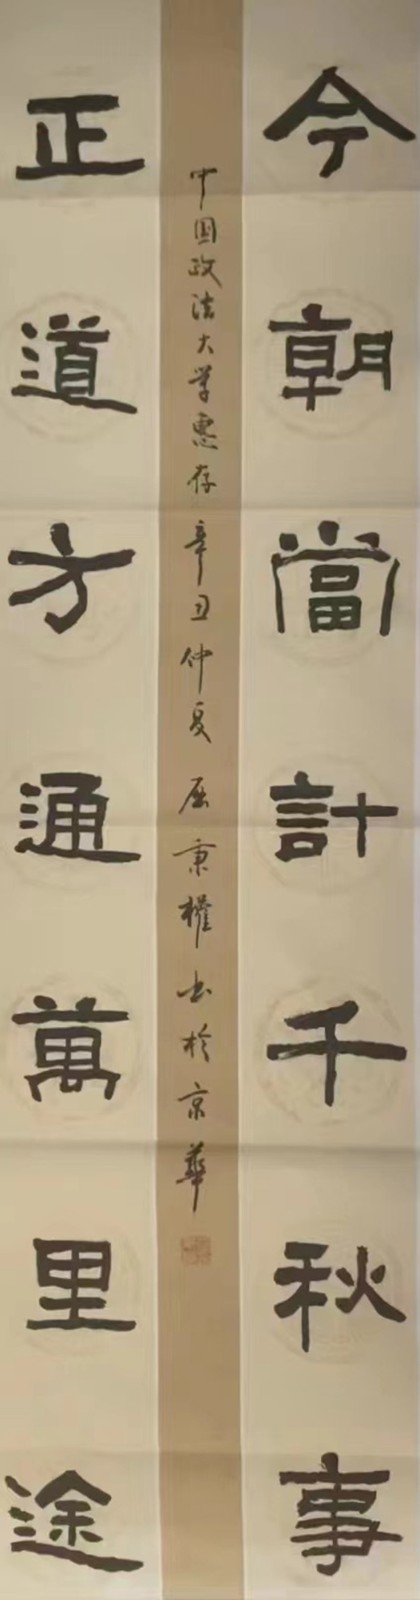 今朝當計千秋事
正道方通萬里途
中国政法大学惠存辛丑仲夏屈秉權书於京華